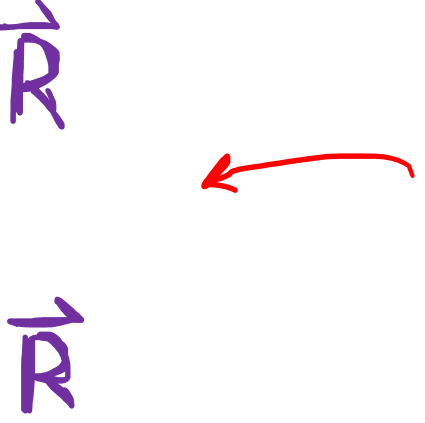 R⃗
R⃗